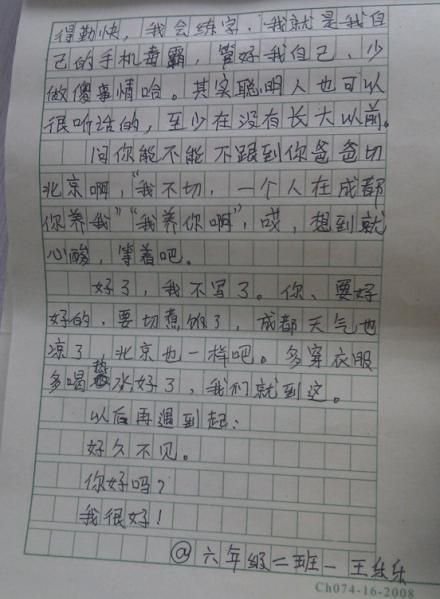 得勤快，我会练字，我就是我自
己的手机毒霸，管好我自己、少
做傻事情哈。其实聪明人也可以
很听话的，至少在没有长大以前。
问你能不能不跟到你爸爸切
北京啊，“我不切，一个人在成都
你养我”“我养你啊”，哎，想到就
心酸，等着吧。
好了，我不写了。你、要好
好的，要切煮饭了，成都天气也
凉了，北京也一样吧。多穿衣服
多喝热水好了，我们就到这。
以后再遇到起：
好久不见。
你好吗？
我很好！
@六年级二班一王乐乐
Ch074-16-2008